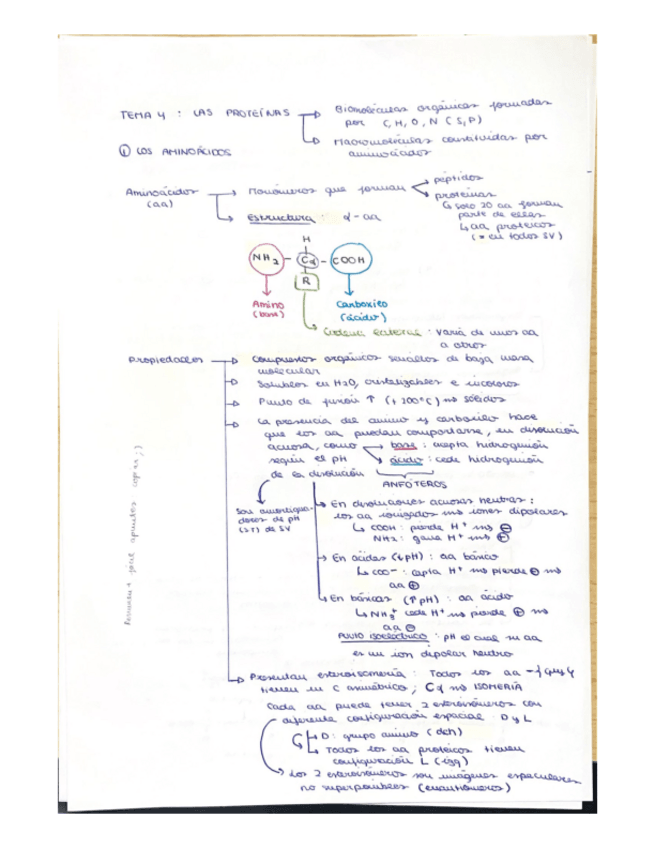 TEMA 4 : LAS PROTEÍNAS
Biomoléculas orgánicas formadas
por C, H, O, N (S, P)
Macromoléculas constituidas por
aminoácidos
① LOS AMINOÁCIDOS
Aminoácidos
(aa)
Monómeros que forman
péptidos
proteínas
↳ solo 20 aa forman
parte de ellas
↳ aa proteicos
(= en todos SV)
Estructura : α-aa
H
NH2 - Cα - COOH
R
Amino
(base)
Carboxilo
(ácido)
Cadena lateral : varía de unos aa
a otros
Propiedades
Compuestos orgánicos sencillos de baja masa
molecular
Solubles en H2O, cristalizables e incoloros
Punto de fusión ↑ (+200°C) → sólidos
La presencia del amino y carboxilo hace
que los aa puedan comportarse, en disolución
acuosa, como
base : acepta hidrogenión
según el pH
ácido : cede hidrogenión
de la disolución
ANFÓTEROS
Son amortigua-
dores de pH
de SV
En disoluciones acuosas neutras :
los aa ionizados → iones dipolares
↳ COOH : pierde H+ → ⊖
NH2 : gana H+ → ⊕
En ácidas (↓pH) : aa básico
↳ COO- : capta H+ → pierde ⊖ →
aa ⊕
En básicas (↑pH) : aa ácido
↳ NH3+ cede H+ → pierde ⊕ →
aa ⊖
Punto isoeléctrico : pH al cual un aa
es un ion dipolar neutro
Presentan estereoisomería : Todos los aa - {
tienen un C asimétrico ; Cα → ISOMERÍA
Cada aa puede tener 2 estereoisómeros con
diferente configuración espacial : D y L
D : grupo amino (dch)
Todos los aa proteicos tienen
configuración L (izq)
Los 2 estereoisómeros son imágenes especulares
no superponibles (enantiómeros)
fácil apuntes copiar ;)